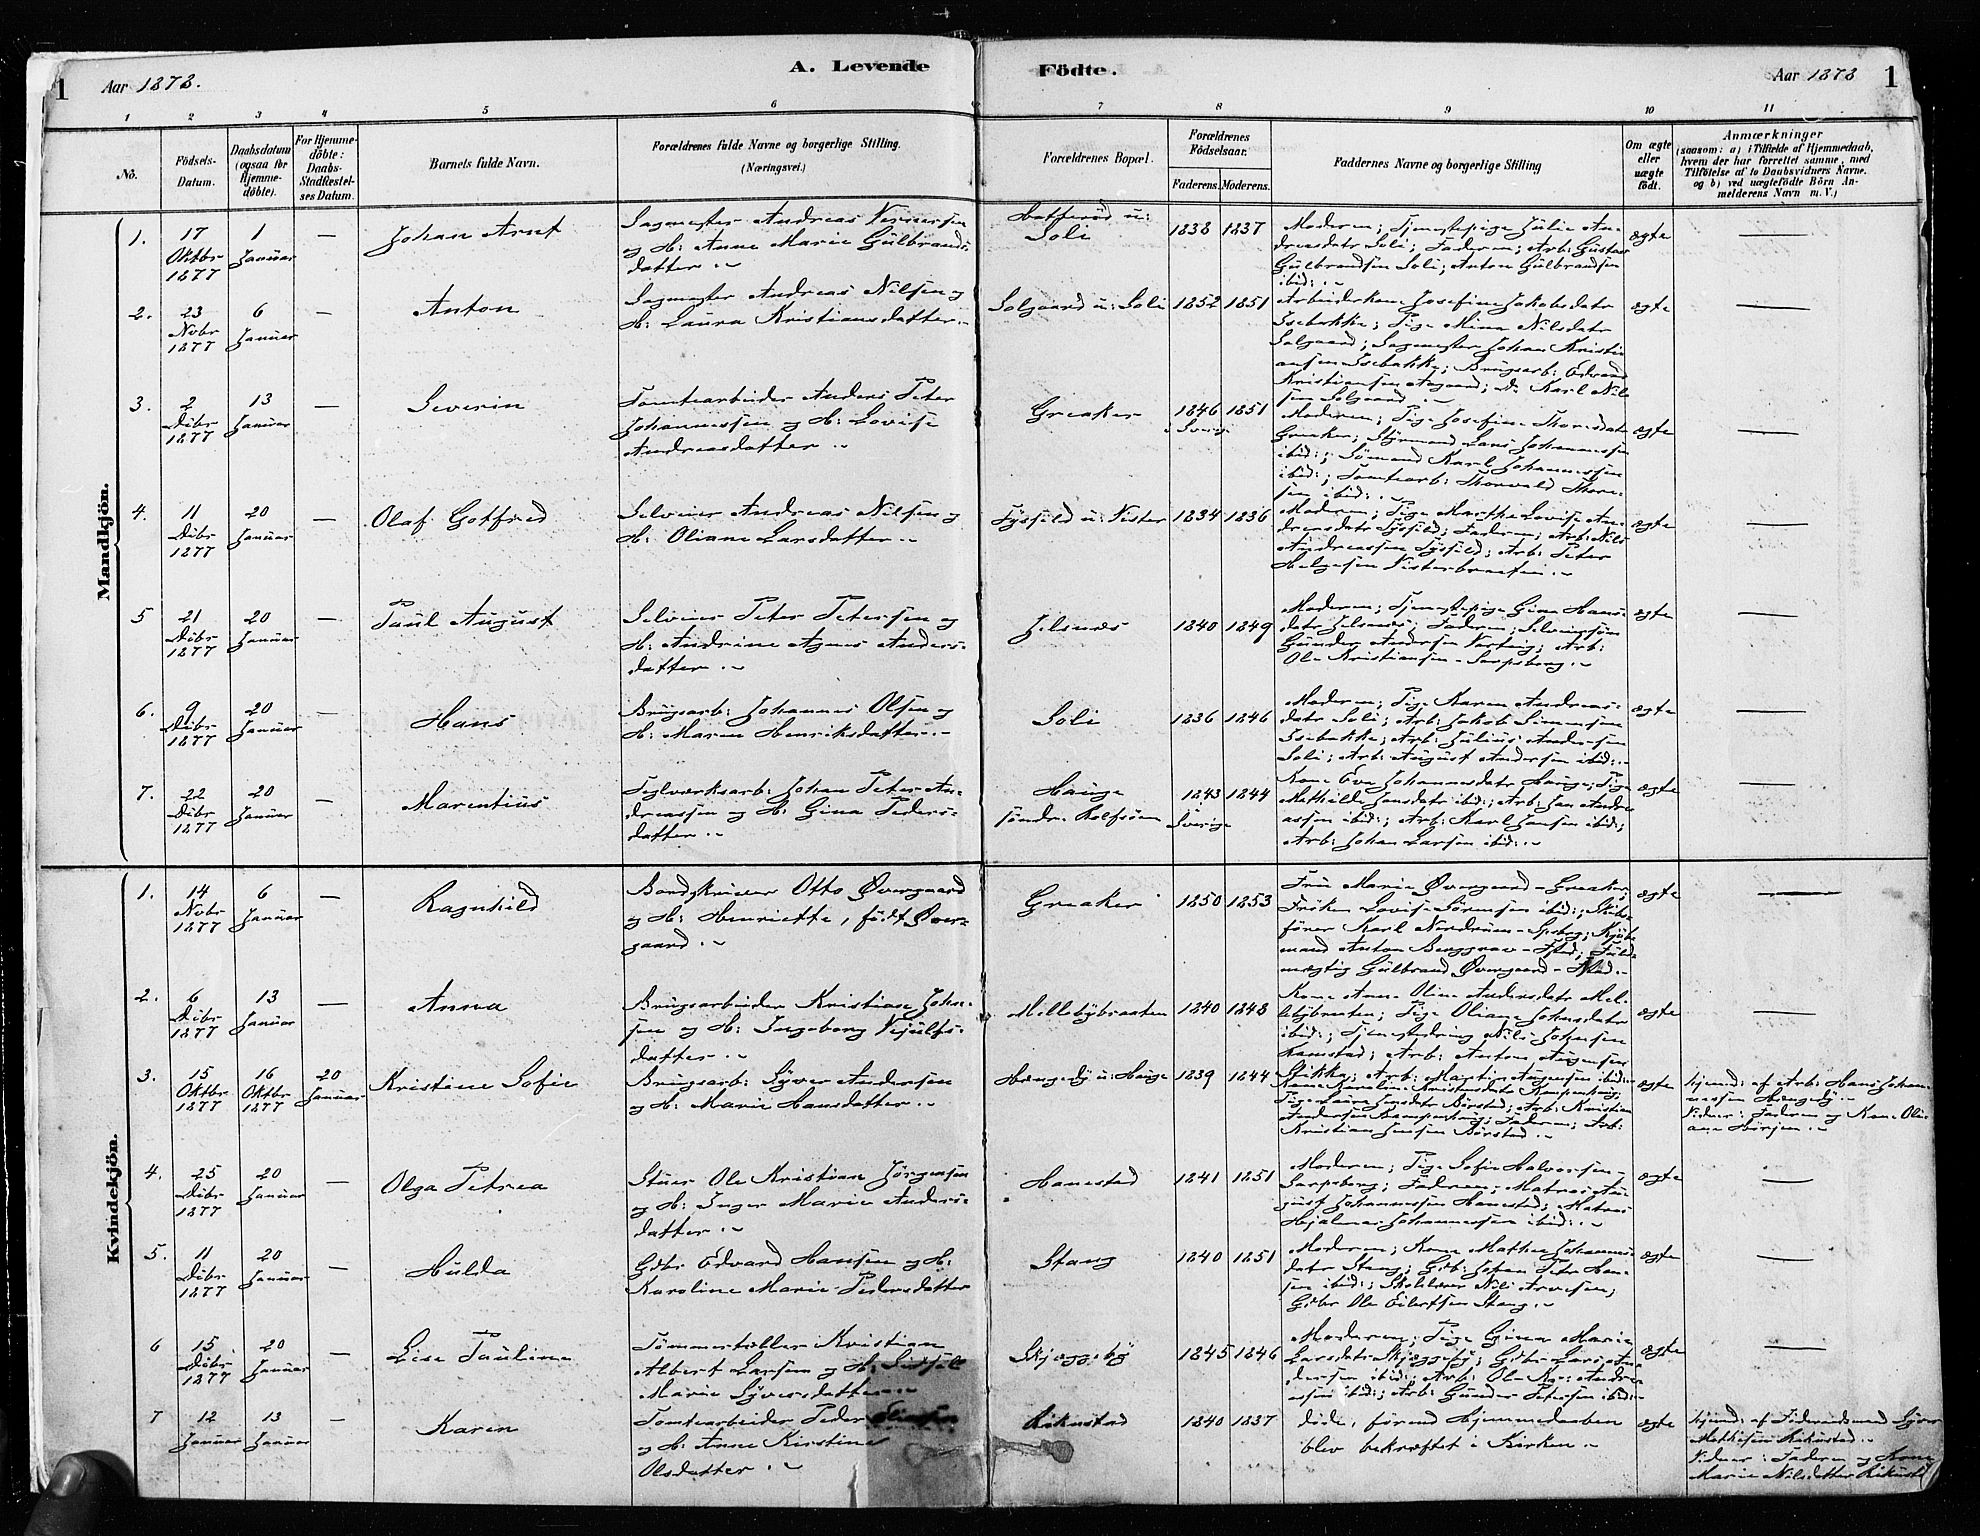 1 Aar 1878. A. Levende Födte. Aar 1878 1
1 2 3 4 5 6 7 8 9 10 11
No.
Födsels-Datum.
Daabsdatum (ogsaa for Hjemmedöbte).
For Hjemmedöbte: Daabs-Stadfæstelses Datum.
Barnets fulde Navn.
Forældrenes fulde Navne og borgerlige Stilling. (Næringsvei.)
Forældrenes Bopæl.
Forældrenes Födselsaar.
Faderens. Moderens.
Faddernes Navne og borgerlige Stilling
Om ægte eller uægte født.
Anmærkninger
(saasom: a) i Tilfælde af Hjemmedaab,
hvem der har forrettet samme, med
Tilföielse af to Daabsvidners Navne.
og b) ved uægtefödte Börn Anmelderens Navn m. V.)
Mandkjön.
1. 17 Oktbr 1877 1 Januar — Johan Arnt
Sagmester Andreas
og H: Anne Marie Gulbrands-
datter.
u: Soli 1838 1837
Moderen; Tjenestepige Julie An-
dreasdatr Soli; Faderen; Arb: Gustav
Gulbrandsen Soli; Anton Gulbrandsen
ibid:.
ægte —
2. 23 Novbr 1877 6 Januar — Anton
Sagmester Andreas Nilsen og
H: Laura Kristiansdatter.
Solgaard u: Soli 1852 1851
Arbeiderkone Josefine Jakobsdatr
Isebakke; Pige Mina Nilsdatr
Solgaard; Sagmester Johan Kristi-
ansen Isebakke; Brugsarb: Edvard
Kristiansen Aagaard; Do Karl Nil-
sen Solgaard.
ægte —
3. 2 Debr 1877 13 Januar — Severin
Tomtearbeider Anders Peter
Johannessen og H: Lovise
Andreasdatter.
Greaker 1846 i Sverige 1851
Moderen; Pige Josefine Thorsdatr
Greaker; Styrmand Lars Johannessen
ibid:; Sömand Karl Johannessen
ibid:; Tomtearb: Thorvald Thor-
sen ibid:.
ægte —
4. 11 Debr 1877 20 Januar — Olaf Gotfred
Selveier Andreas Nilsen og
H: Oliane Larsdatter.
u: Vister 1834 1836
Moderen; Pige Marthe Lovise An-
dreasdatr; Faderen; Arb: Nils
Andreassen; Arb: Peter
Helgesen Visterbraaten.
ægte —
5 21 Debr 1877 20 Januar — Paul August
Selveier Peter Petersen og
H: Andrine Agnes Anders-
datter.
Jelsnæs 1840 1849
Moderen; Tjenestepige Gina Hans-
datr Jelsnæs; Faderen; Selveiersön
Gunder Andersen Varteig; Arb:
Ole Kristiansen - Sarpsborg.
ægte —
6. 9 Debr 1877 20 Januar — Hans
Brugsarb: Johannes Olsen og
H: Maren Henriksdatter.
Soli 1836 1846
Moderen; Pige Karen Andreas-
datr Soli; Arb: Jakob Simensen
Isebakke; Arb: Julius Andersen
Soli; Arb: August Andersen ibid:.
ægte —
7. 22 Debr 1877 20 Januar — Marentius
Teglværksarb: Johan Peter An-
dreassen og H: Gina Peders-
datter.
Hauge söndre Rolfsöen 1843 Sverige 1844
Kone Eva Johannesdatr Hauge; Pige
Mathilde Jansdatr ibid:; Arb: Jan Andre-
assen ibid:; Arb: Karl Jansen ibid:;
Arb: Johan Larsen ibid:.
ægte —
Kvindekjön.
1. 14 Novbr 1877 6 Januar — Ragnhild
Bordskriver Otto Övergaard
og H: Henriette, född Över-
gaard.
Greaker 1850 1853
Frue Marie Övergaard - Greaker;
Fröken Lovise Sörensen ibid:; Skibs-
förer Karl Nordrum - Spsborg; Kjöb-
mand Anton Berggrav - Fstad; Fuld-
mægtig Gulbrand Övergaard - Fstad.
ægte —
2. 6 Debr 1877 13 Januar — Anna
Brugsarbeider Kristian John-
sen og H: Ingeborg
datter.
Millebybraaten 1840 1843
Kone Anne Oline Andersdatr Mel-
lebybraaten; Pige Oliane Johnsdatr
ibid:; Tjenestedreng Nils Johnsen
Hannestad; Arb: Anton Augensen
Stikka; Arb: Martin Augensen ibid:.
ægte —
3. 15 Oktbr 1877 16 Oktbr 1877 20 Januar Kristine Sofie
Brugsarb: Syver Andersen
og H: Marie Hansdatter.
u: Hauge 1839 1844
Kone Karoline Kristensdatr Kampenhaug;
Pige Laura Jensdatr Börstad; Arb: Kristian
Andersen Kampenhaug; Faderen; Arb:
Kristian Jensen Börstad.
ægte
Hjemd: af Arb: Hans Johan-
nessen
Vidner: Faderen og Kone Oli-
ane
4. 25 Debr 1877 20 Januar — Olga Petrea
Stuer Ole Kristian Jörgensen
og H: Inger Marie Anders-
datter.
Hanestad 1841 1851
Moderen; Pige Sofie Halvorsen -
Sarpsborg; Faderen; Matros Au-
gust Johannessen Hanestad; Matros
Hjalmar Johannessen ibid:.
ægte —
5. 11 Debr 1877 20 Januar — Hulda
Gdbr Edvard Hansen og H:
Karoline Marie Pedersdatter
Stang 1840 1851
Moderen; Kone Mathea Johannes-
datr Stang; Gdb: Johan Peter Han-
sen ibid:; Skolelærer Nils Arvesen;
Gdbr Ole Eilertsen Stang.
ægte —
6 15 Debr 1877 20 Januar — Lise Pauline
Tömmertæller Kristian
Albert Larsen og H: Sidsel
Marie Syversdatter.
Skjæggeby 1845 1846
Moderen; Pige Gina Marie
Larsdatr Skjæggeby; Gdbr Lars An-
dersen ibid:; Arb: Ole Kr: Andre-
assen ibid:; Arb: Gunder Petersen ibid:.
ægte —
7 12 Januar 13 Januar — Karen
Tomtearbeider Peder
og H: Anne Kirstine
Olsdatter.
Rikustad 1840 1837
döde, förend Hjemmedaaben
blev bekræftet i Kirken.
ægte
Hjemd: af Födeendsmand Syver
Mathisen Rikustad.
Vidner: Faderen og Kone
Marie Nilsdatter Rikustad